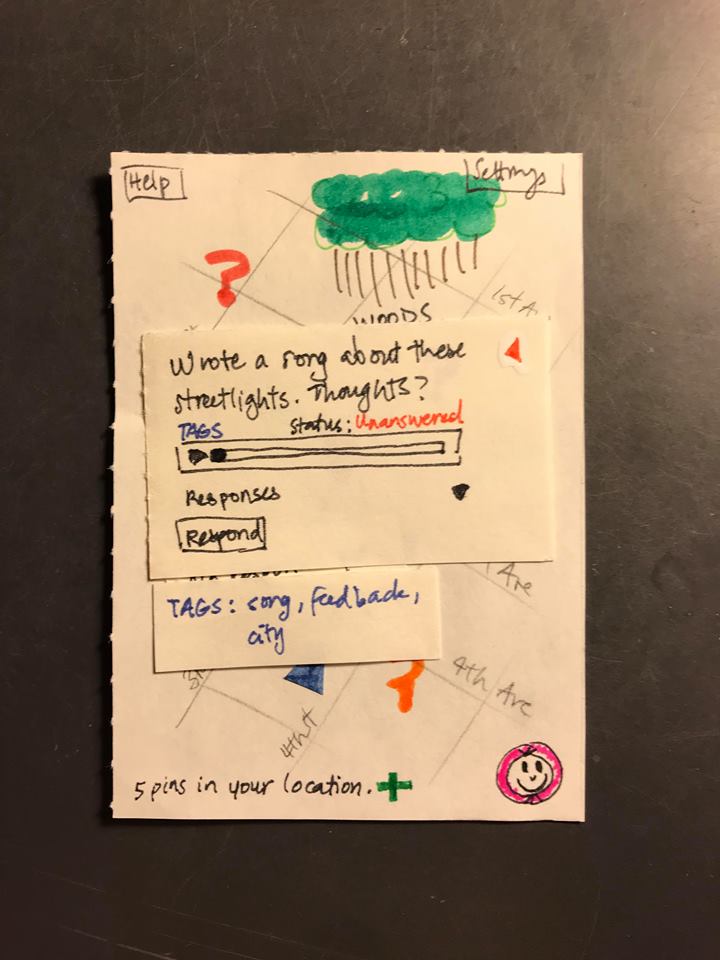 Help
Settings
1st A
WOODS
Wrote a song about these
streetlights. Thoughts?
TAGS status: Unanswered
Responses
Respond
Ave
TAGS: song, feedback,
city
4th Ave
4th
5 pins in your location. +